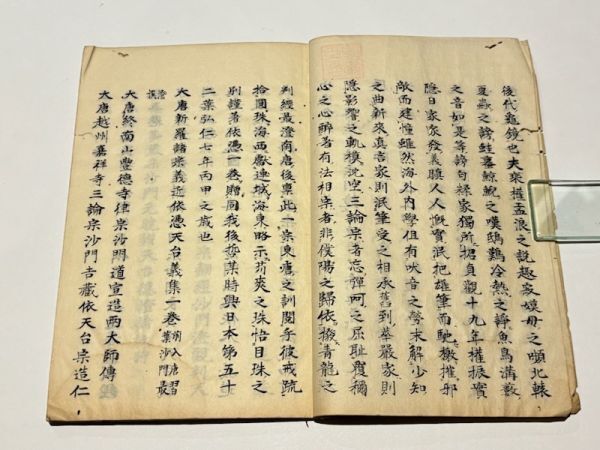 後代龜鏡也夫來權孟浪之說趣家嫫母之頌北轅
夏蟲之諍蛙黿鯨鯢之嘆鴟鷄冷熱之諍魚鳥溝藪
之音如是等諍句緣家獨所搪貞觀十九年權振實
隱日家家發義膓人人慨實泯把雄筆而馳檄摧邪
敵而建幢雖然海外內學但有吠音之勞未解少知
之曲新來真言家則泯筆受之相承舊到華嚴家則
隱影響之軌模沈空三論宗者忘彈呵之屈耻覆稱
心之心醉著有法相宗者非僕陽之歸依撥青龍之
判經最澄南唐後稟此一宗東唐之訓閱乎彼戒疏
拾圓珠海西獻連城海東略示荊夾之珠悟目珠之
別謹著依憑一卷贈同我後哲某時興日本第五十
二葉弘仁七年丙申之歲也
大唐新羅諸宗義匠依憑天台義集一卷 前入唐習
業沙門最
澄撰
大唐終南山豐德寺律宗沙門道宣造兩大師傳
大唐越州嘉祥寺三論宗沙門吉藏依天台宗造仁